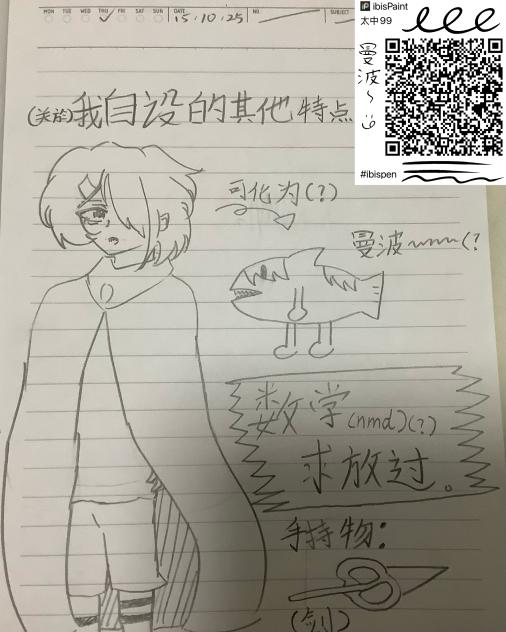 MON TUE WED THU FRI SAT SUN DATE 15.10.25 NO. SUBJECT
ibisPaint
太中99
曼波~
#ibispen
(关于)我自设的其他特点
可化为(?)
曼波~(?
数学(nmd)(?)
求放过。
手持物:
(剑)